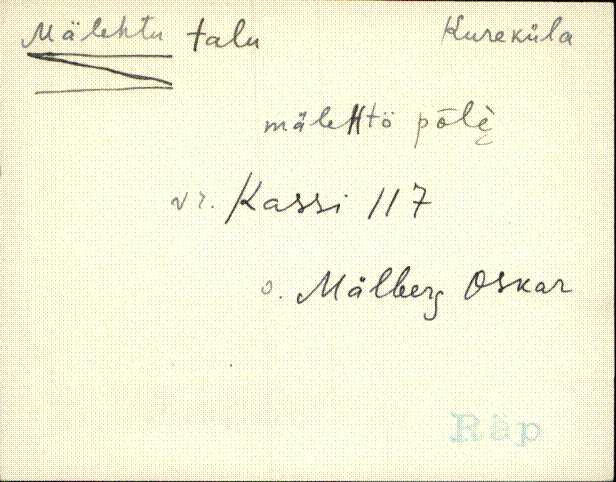 Mälehtu talu Kureküla
mälehtö põlè
vr. Kassi 117
o. Mälberg Oskar
Räp